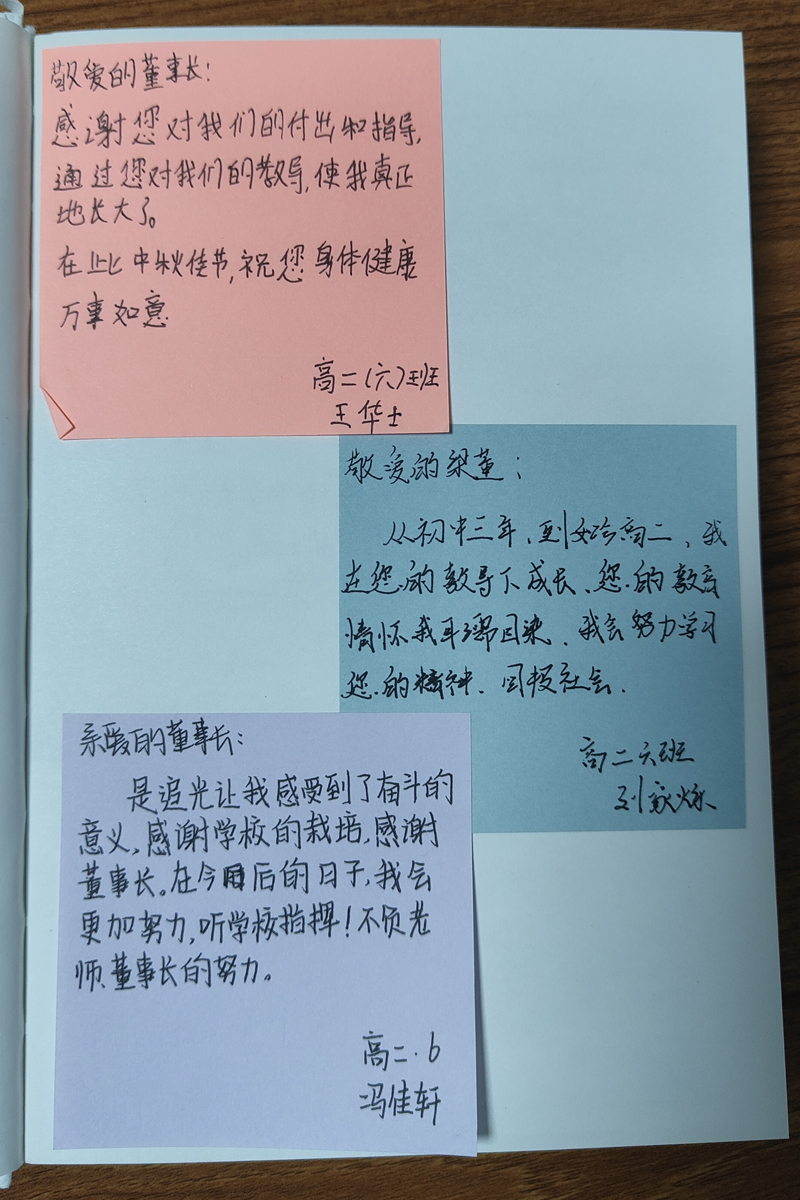 敬爱的董事长：
感谢您对我们的付出和指导，
通过您对我们的教导，使我真正
地长大了。
在此中秋佳节，祝您身体健康
万事如意
高二（六）班
王华士
敬爱的梁董：
从初中三年，到如今高二，我
在您的教导下成长、您的教育
情怀我耳濡目染、我会努力学习
您的精神、回报社会.
高二六班
刘家焌
亲爱的董事长：
是追光让我感受到了奋斗的
意义，感谢学校的栽培，感谢
董事长。在今后的日子，我会
更加努力，听学校指挥！不负老
师、董事长的努力。
高二·6
冯佳轩